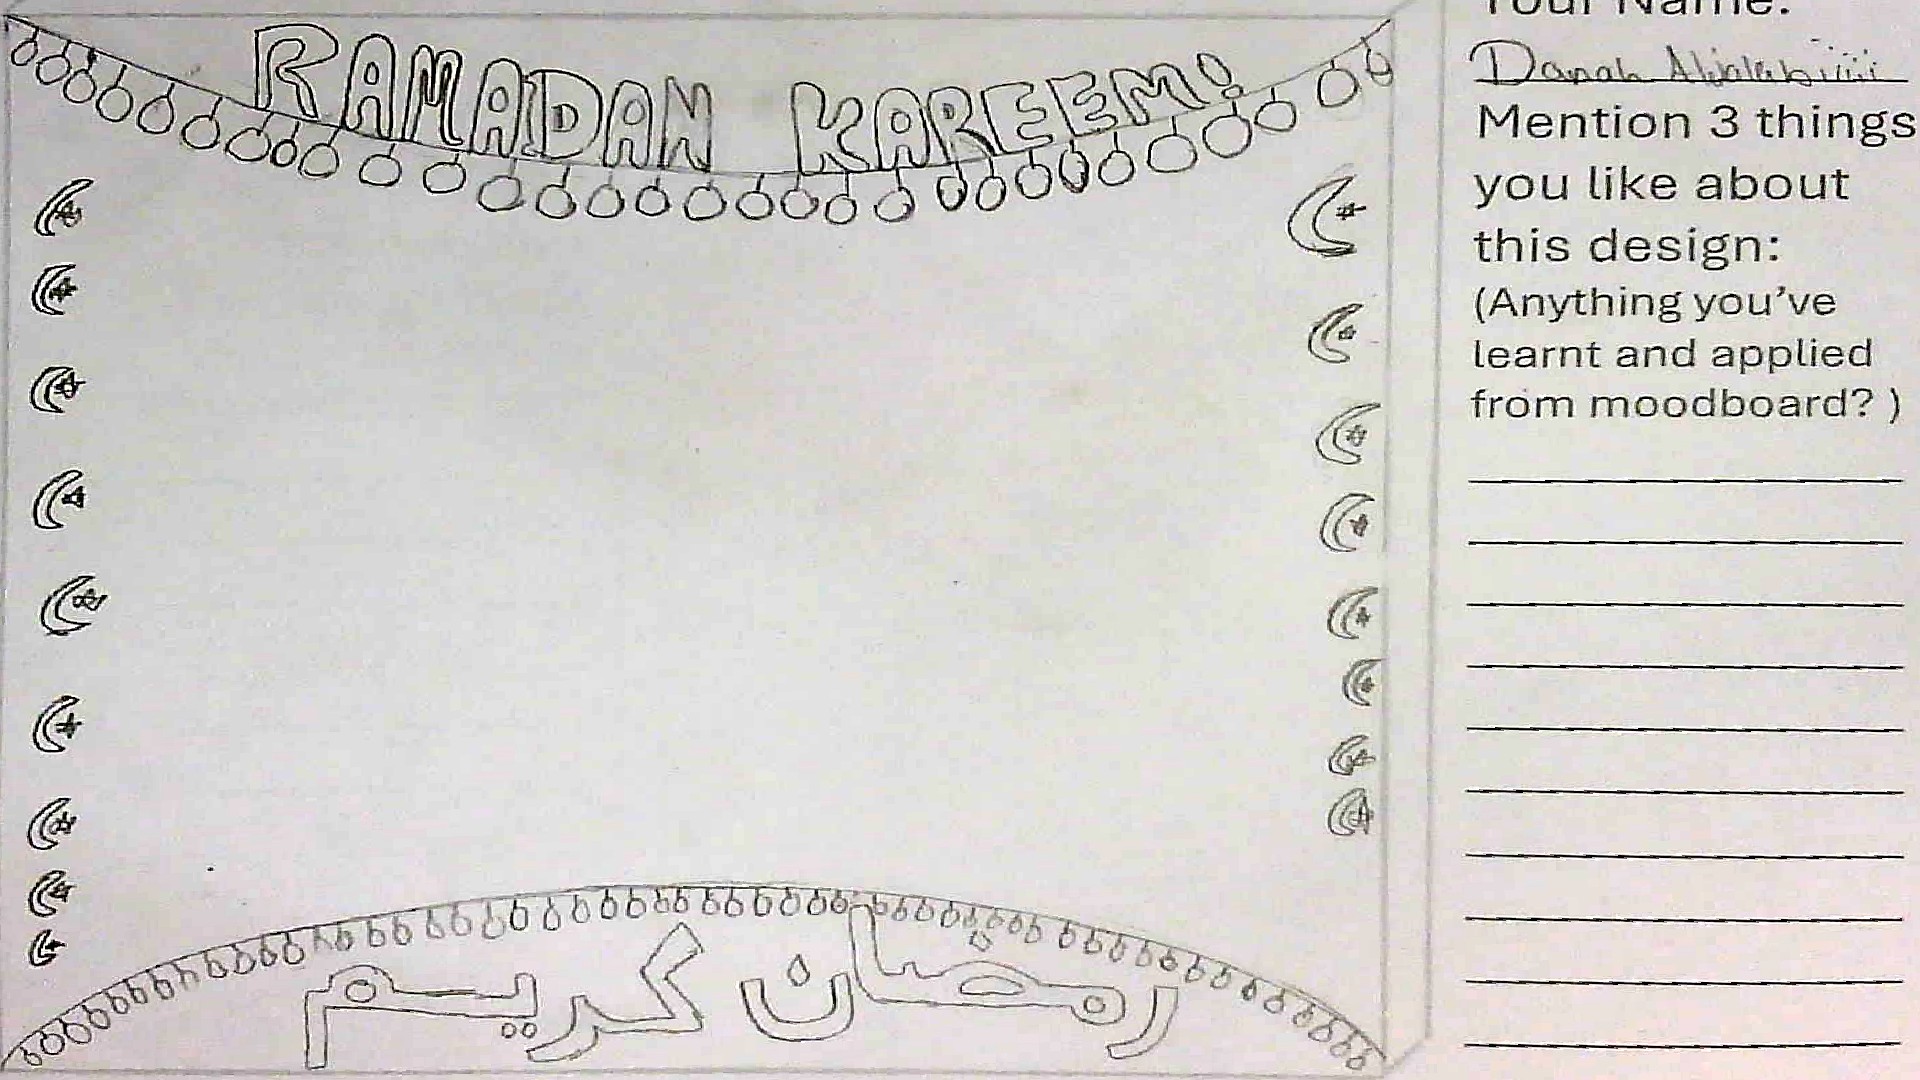 RAMADAN KAREEM!
رمضان كريم
Your Name:
Danah
Mention 3 things
you like about
this design:
(Anything you've
learnt and applied
from moodboard? )